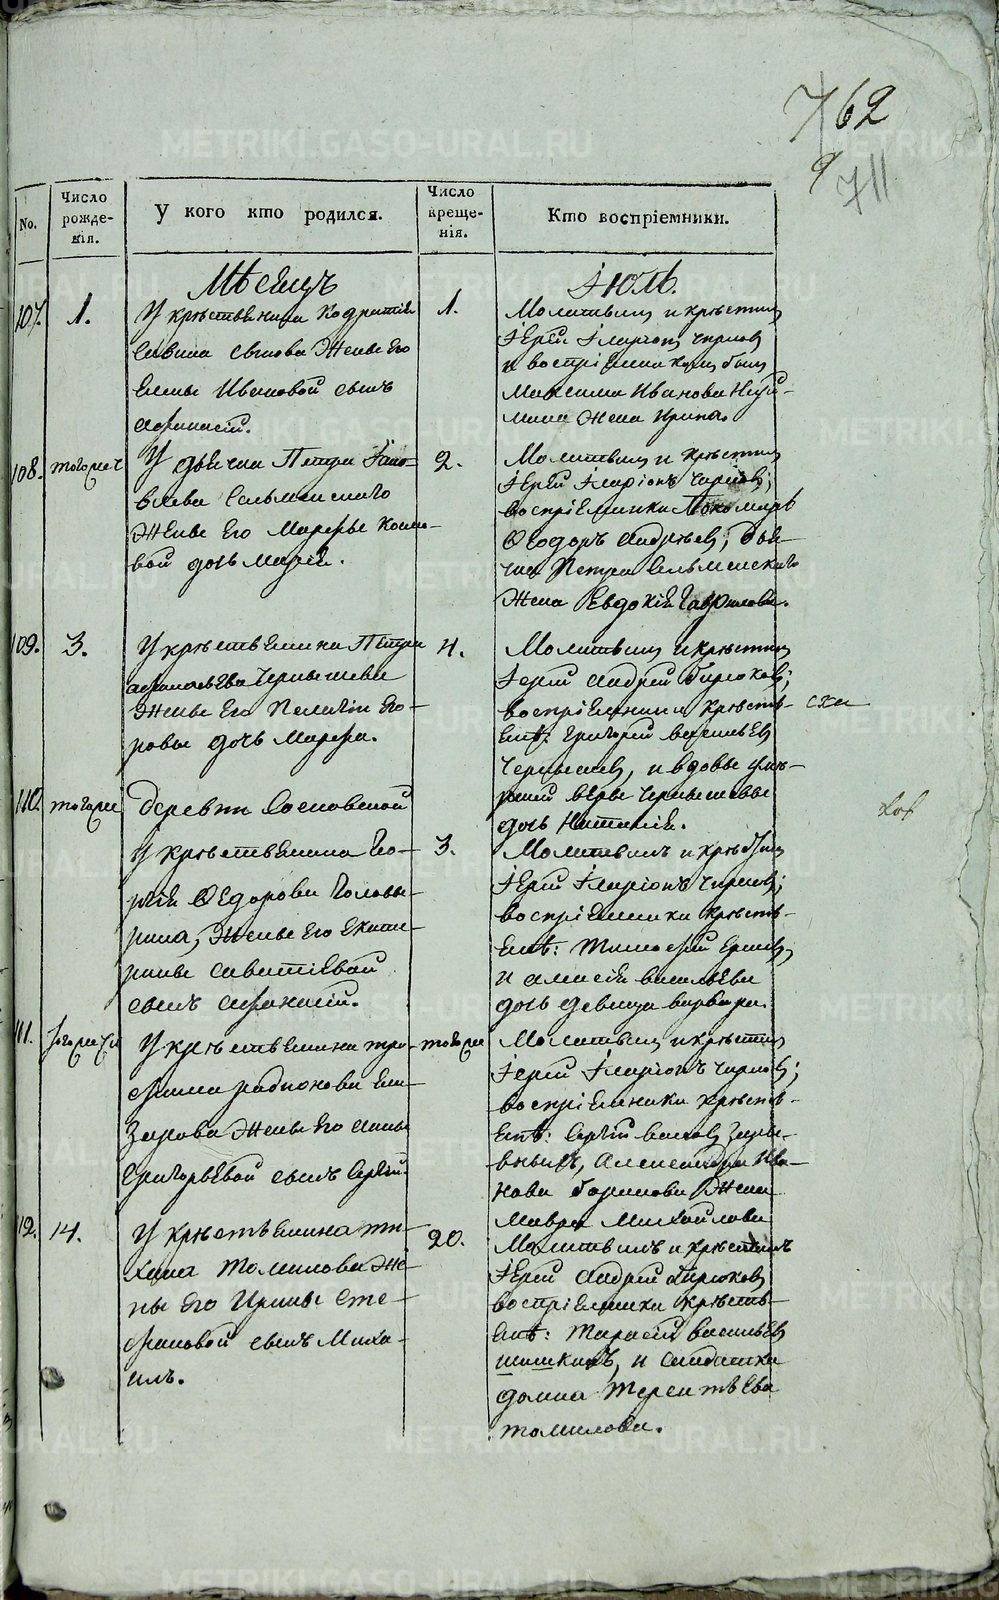 762
9
711
No.
Число рожде-нія.
У кого кто родился.
Число креще-нія.
Кто воспріемники.
Мѣсяцъ
Іюль.
107.
1.
У крѣстьянина Кодратія
Савина сынова Жены Его
Елены Ивановой сынъ
Афанасій.
1.
Молитвилъ и крѣстилъ
Іерей Іларіонъ Чирковъ
и воспріемникомъ былъ
Максима Иванова
Жена Ирина.
108.
У дьячка Петра
Сельменскаго
Жены Его Марфы
вой дочь Марія.
2.
Молитвилъ и крѣстилъ
Іерей Іларіонъ Чирковъ;
воспріемники Пономарь
Ѳеодоръ Андрѣевъ, дья-
чка Петра Сельменскаго
Жена Евдокія Гаврилова.
109.
3.
У крѣстьянина Петра
Афанасьева Чернышева
Жены Его Пелагіи Его-
ровы дочь Марфа.
4.
Молитвилъ и крѣстилъ
Іерей Андрей Бирюковъ;
воспріемники крѣсть-
янѣ: Григорей Васильевъ
Чернышевъ, и вдовы
Вѣры Чернышевы
дочь Наталія.
110.
тогоже
деревни Сосновской
У крѣстьянина Гео-
ргія Ѳедорова Головы-
рина, Жены Его Екате-
рины Саватіевой
сынъ Афанасій.
3.
Молитвилъ и крѣстилъ
Іерей Іларіонъ Чирковъ;
воспріемники крѣсть-
янѣ: Тимофей Ершовъ,
и Алексія Васильева
дочь девица Варвара.
111.
У крѣстьянина Тро-
фима Радионова Ела-
зарова Жены Его Анны
Григорьевой сынъ Сергій.
тогоже
Молитвилъ и крѣстилъ
Іерей Іларіонъ Чирковъ;
воспріемники крѣсть-
янѣ: Сергій
Александра Ива-
нова Жена
Мавра Михайлова
112.
14.
У крѣстьянина Ти-
хана Томилова Же-
ны Его Ирины Сте-
фановой сынъ Миха-
илъ.
20.
Молитвилъ и крѣстилъ
Іерей Андрей Бирюковъ
воспріемники крѣсть-
янѣ: Тарасій Васильевъ
Шишкинъ, и Солдатка
Домна Терентьева
Томилова.
METRIKI.GASO-URAL.RU